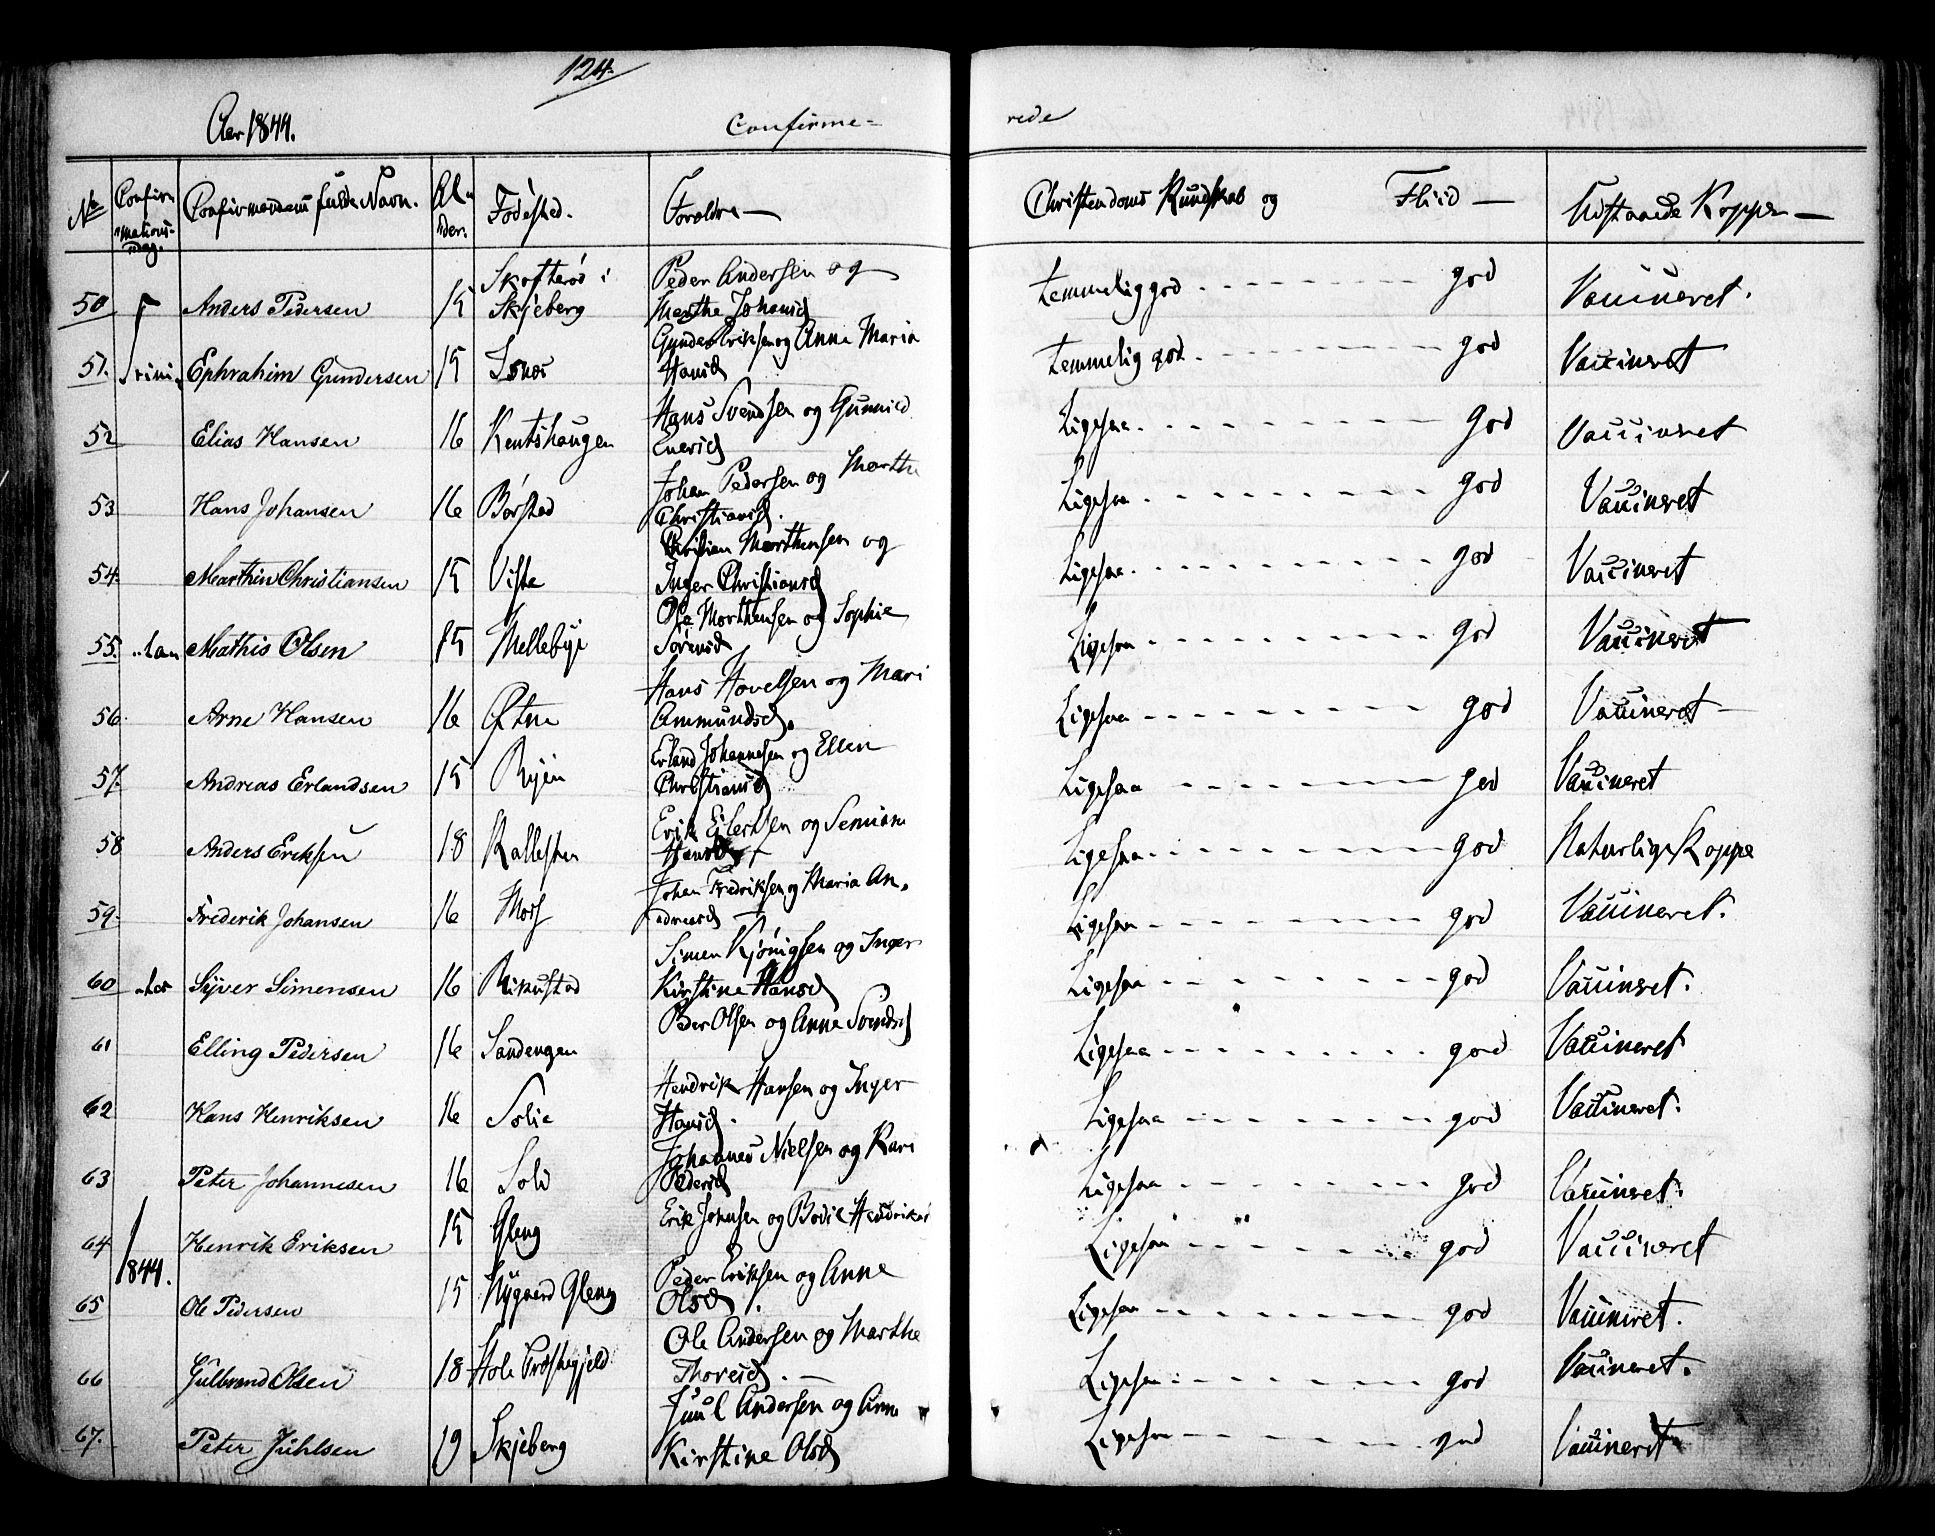 124.
Aar 1844. Confirme- rede
No Confirmationsdag. Confirmandens fulde Navn. Alder. Fødested. Foreldre — Christendoms Kundskab og Fliid — Udstaaede Kopper —
50 Anders Pedersen 15 Skofterød i Skjeberg Peder Andersen og Marthe Johansd Temmelig god god Vaccineret.
51. Trini Ephrahim Gundersen 15 Isnes Gunder Eriksen og Anne Maria Hansd Temmelig god god Vaccineret
52 Elias Hansen 16 Hans Svendsen og Gunnild Enersd Ligesaa god Vaccineret
53 Hans Johansen 16 Børstad Johan Pedersen og Marthe Christiansd. Ligesaa god Vaccineret
54. Marthin Christiansen 15 Viste Christian Marthensen og Inger Christiansd Ligesaa god Vaccineret
55. tan Mathis Olsen 15 Mellebye Ole Morthensen og Sophie Sørensd Ligesaa god Vaccineret
56. Arne Hansen 16 Østne Hans Hovelsen og Mari Ammundsd. Ligesaa god Vaccineret
57. Andreas Erlandsen 15 Ryen Erland Johannesen og Ellen Christiansd Ligesaa god Vaccineret
58 Anders Eriksen 18 Kallesten Erik Eilertsen og Hansd Ligesaa god Naturlige Koppe
59. Frederik Johansen 16 Moss Johan Fredriksen og Maria Andreasd Ligesaa god Vaccineret.
60 Syver Simensen 16 Simen og Inger Kirstine Hansd Ligesaa god Vaccineret.
61 Elling Pedersen 16 Sandengen Peer Olsen og Anne Svendsd Ligesaa god Vaccineret
62 Hans Henriksen 16 Solie Hendrik Hansen og Inger Hansd. Ligesaa god Vaccineret.
63 Peter Johannesen 16 Soli Johannes Nielsen og Kari Pedersd Ligesaa god Vaccineret.
64 1844. Henrik Eriksen 15 Gleng Erik Johnsen og Bodil Hendriksd Ligesaa god Vaccineret
65 Ole Pedersen 15 Nygaard Gleng Peder Eriksen og Anne Olsd. Ligesaa god Vaccineret.
66 Gulbrand Olsen 18 Hole Præstegjeld Ole Andersen og Marthe Thoresd. — Ligesaa god Vaccineret.
67. Peter Juhlsen 19 Skjeberg Juul Andersen og Anne Kirstine Olsd Ligesaa god Vaccineret